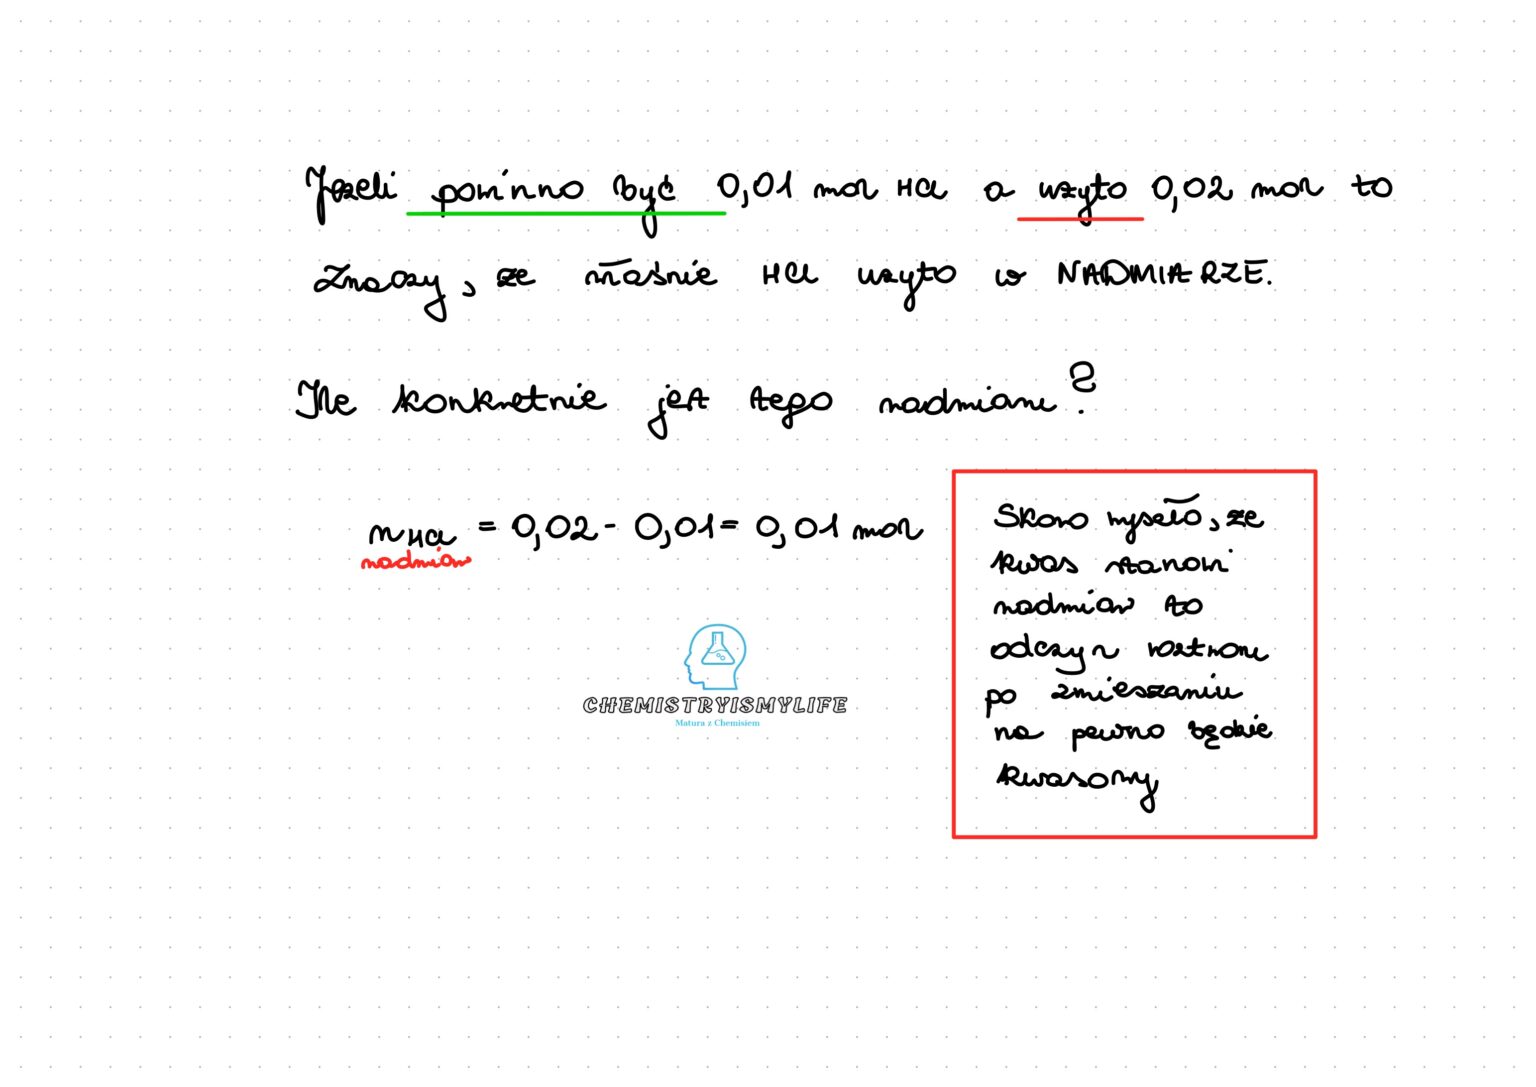 Jeżeli powinno być 0,01 mol HCl a użyto 0,02 mol to
znaczy, że właśnie HCl użyto w NADMIARZE.
Ile konkretnie jest tego nadmiaru?
nHCl = 0,02 - 0,01 = 0,01 mol
nadmiar
Skoro wyszło, że
kwas stanowi
nadmiar to
odczyn roztworu
po zmieszaniu
na pewno będzie
kwasowy
CHEMISTRYISMYLIFE
Matura z Chemisiem